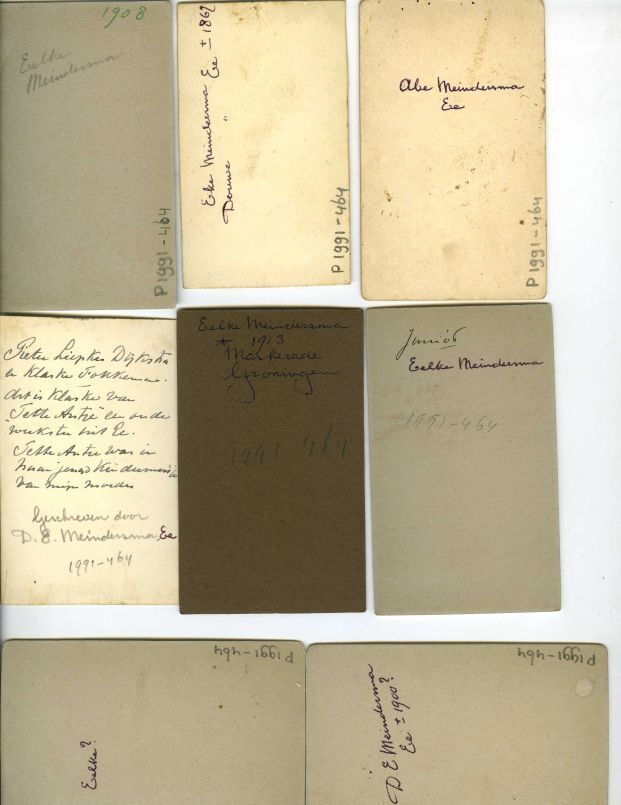 1908
Eelke
Meindersma
P1991-464
Eke Meindersma Ee ± 1862
Douwe "
P1991-464
Abe Meindersma
Ee
P1991-464
Pieter Liepkes Dijkstra
en Klaske Fokkema.
dat is Klaske van
Tette Antje en oude
werkster uit Ee.
Tette Antje was in
haar jeugd Kindermeisje
van mijn moeder
Geschreven door
D. E. Meindersma, Ee
1991-464
Eelke Meindersma
± 1913
Markerade
Groningen
1991 464
Junior
Eelke Meindersma
1991-464
P1991-464
Eelke?
P1991-464
D E Meindersma
Ee ± 1900?